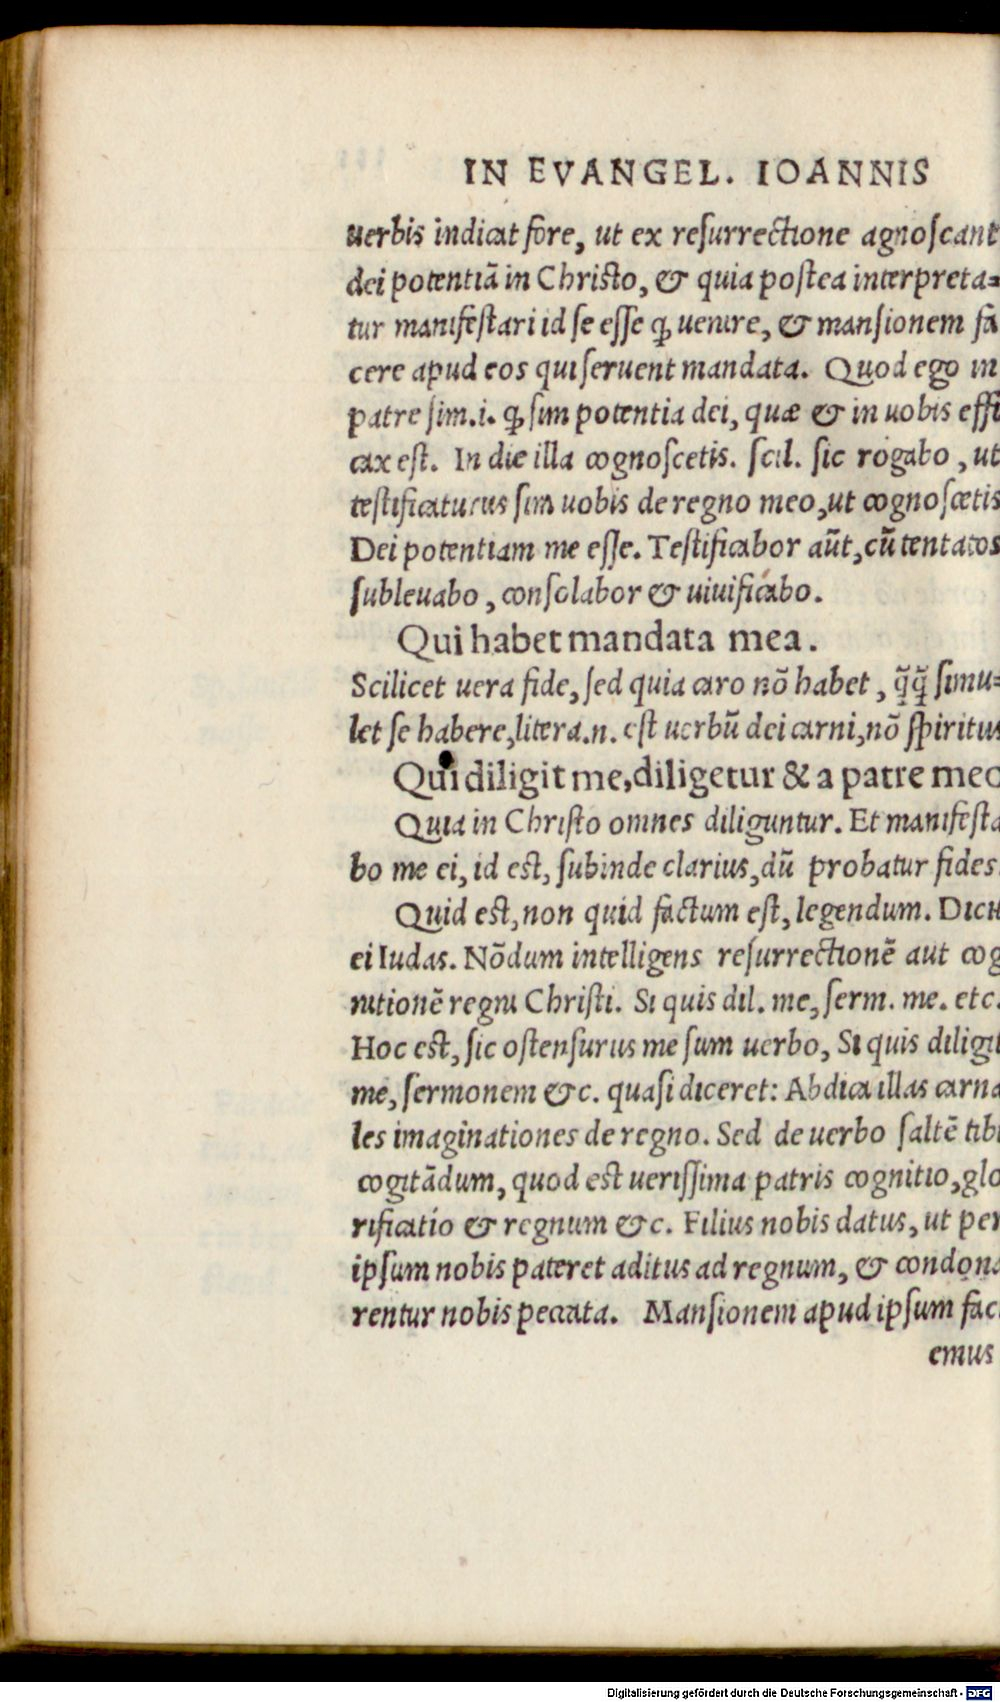 IN EVANGEL. IOANNIS
uerbis indicat fore, ut ex reſurrectione agnoſcant
dei potentiā in Chriſto, & quia poſtea interpreta=
tur manifeſtari id ſe eſſe ꝙ uenire, & manſionem fa
cere apud eos qui ſeruent mandata. Quod ego in
patre ſim.i. ꝙ ſim potentia dei, quæ & in uobis effi
cax eſt. In die illa cognoſcetis. ſcil. ſic rogabo , ut
teſtificaturus ſim uobis de regno meo,ut cognoſcetis
Dei potentiam me eſſe. Teſtificabor aūt,cū tentatos
ſubleuabo , conſolabor & uiuificabo.
Qui habet mandata mea.
Scilicet uera fide, ſed quia caro nō habet , q̃q̃ ſimu=
let ſe habere,litera.n. eſt uerbū dei carni,nō ſpiritus
Qui diligit me,diligetur & a patre meo
Quia in Chriſto omnes diliguntur. Et manifeſta
bo me ei, id eſt, ſubinde clarius,dū probatur fides.
Quid eſt,non quid factum eſt, legendum. Dicit
ei Iudas. Nōdum intelligens reſurrectionē aut cog
nitionē regni Chriſti. Si quis dil. me, ſerm. me. etc.
Hoc eſt, ſic oſtenſurus me ſum uerbo, Si quis diligit
me, ſermonem &c. quaſi diceret: Abdica illas carna
les imaginationes de regno. Sed de uerbo ſaltē tibi
cogitādum, quod eſt ueriſſima patris cognitio,glo
rificatio & regnum &c. Filius nobis datus, ut per
ipſum nobis pateret aditus ad regnum, & condona
rentur nobis peccata. Manſionem apud ipſum faci
emus
Digitalisierung gefördert durch die Deutsche Forschungsgemeinschaft - DFG